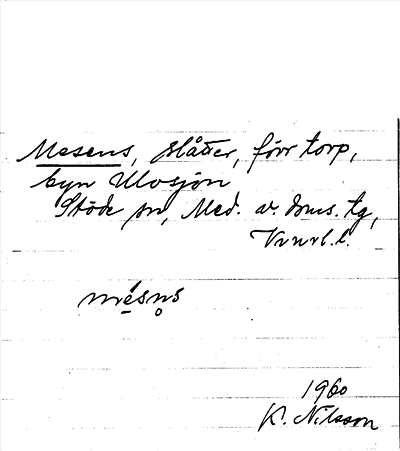 Mesens, slåtter, förr torp,
byn Ulvsjön
Stöde sn, Med. v. doms. tg,
Vnrl. l.
mésns
1960
K. Nilsson